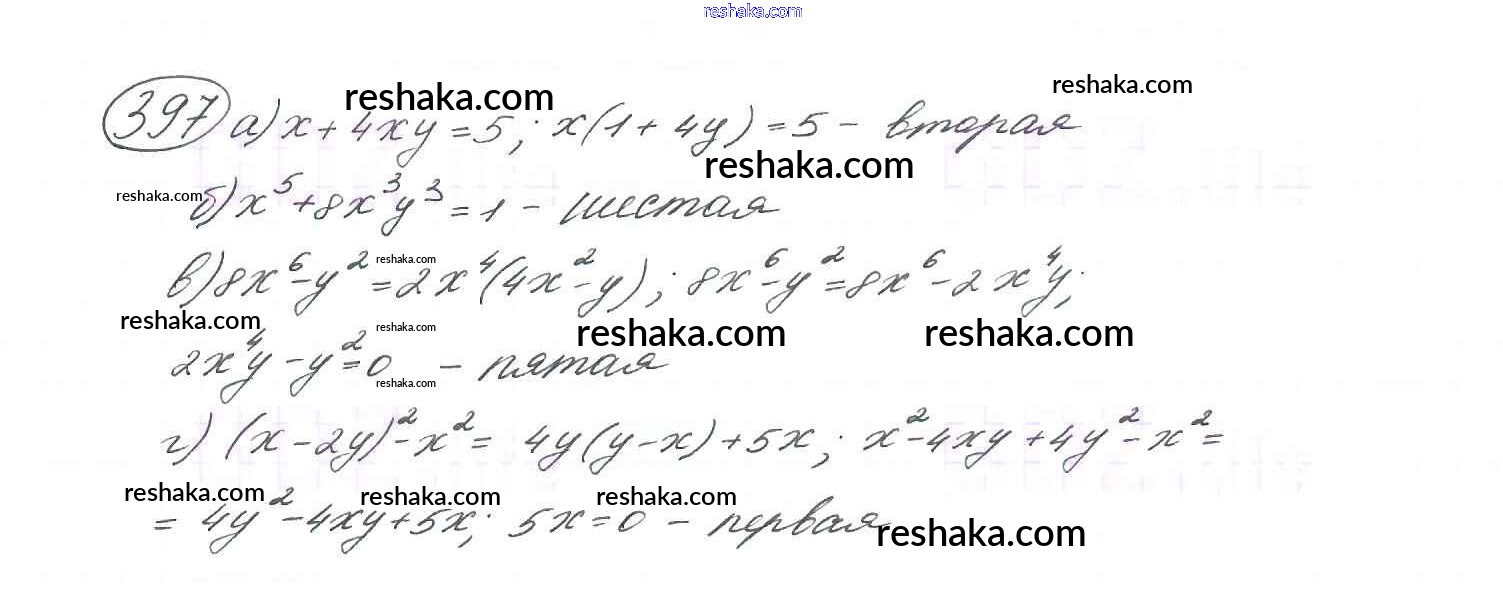 reshaka.com
397 а) x + 4xy = 5; x(1 + 4y) = 5 – вторая
reshaka.com reshaka.com
reshaka.com
б) x⁵ + 8x³y³ = 1 – шестая
reshaka.com
в) 8x⁶ – y² = 2x⁴(4x² – y); 8x⁶ – y² = 8x⁶ – 2x⁴y;
reshaka.com
reshaka.com reshaka.com reshaka.com reshaka.com
2x⁴y – y² = 0 – пятая
reshaka.com
г) (x – 2y)² – x² = 4y(y – x) + 5x; x² – 4xy + 4y² – x² =
reshaka.com reshaka.com reshaka.com
= 4y² – 4xy + 5x; 5x = 0 – первая
reshaka.com